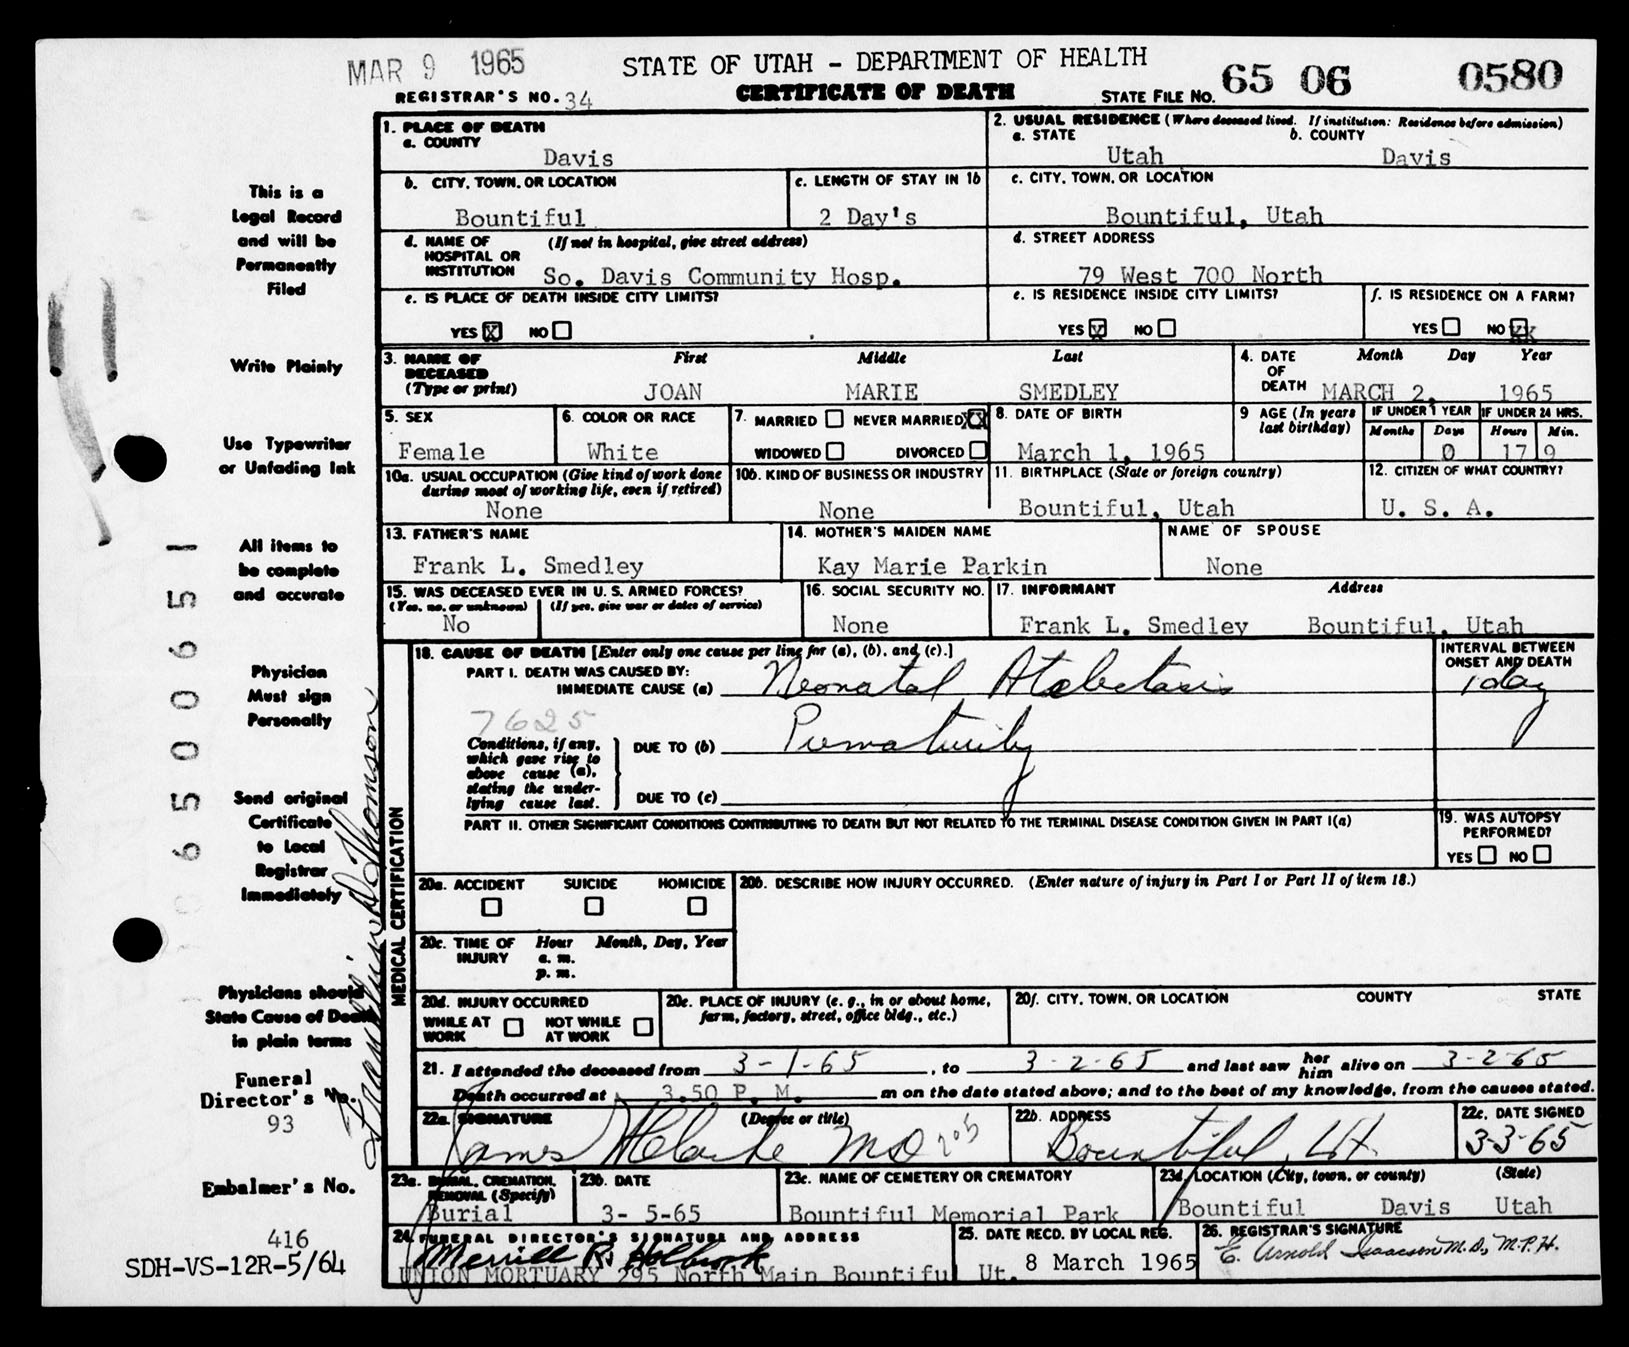 MAR 9 1965
STATE OF UTAH – DEPARTMENT OF HEALTH
65 06 0580
REGISTRAR'S NO. 34
CERTIFICATE OF DEATH
STATE FILE NO.
This is a
Legal Record
and will be
Permanently
Filed
Write Plainly
Use Typewriter
or Unfading Ink
All items to
be complete
and accurate
Physician
Must sign
Personally
Send original
Certificate
to Local
Registrar
Immediately
Physicians should
State Cause of Death
in plain terms
Funeral
Director's No.
93
Embalmer's No.
416
SDH-VS-12R-5/64
6500651
Franklin D. Thomson
1. PLACE OF DEATH
a. COUNTY
Davis
2. USUAL RESIDENCE (Where deceased lived. If institution: Residence before admission)
a. STATE b. COUNTY
Utah Davis
b. CITY, TOWN, OR LOCATION
Bountiful
c. LENGTH OF STAY IN 1b
2 Day's
c. CITY, TOWN, OR LOCATION
Bountiful, Utah
d. NAME OF (If not in hospital, give street address)
HOSPITAL OR
INSTITUTION So. Davis Community Hosp.
d. STREET ADDRESS
79 West 700 North
e. IS PLACE OF DEATH INSIDE CITY LIMITS?
YES X NO
e. IS RESIDENCE INSIDE CITY LIMITS?
YES X NO
f. IS RESIDENCE ON A FARM?
YES NO XX
3. NAME OF First Middle Last
DECEASED
(Type or print) JOAN MARIE SMEDLEY
4. DATE Month Day Year
OF
DEATH MARCH 2, 1965
5. SEX
Female
6. COLOR OR RACE
White
7. MARRIED NEVER MARRIED XX
WIDOWED DIVORCED
8. DATE OF BIRTH
March 1, 1965
9 AGE (In years
last birthday)
IF UNDER 1 YEAR IF UNDER 24 HRS.
Months Days Hours Min.
0 17 9
10a. USUAL OCCUPATION (Give kind of work done
during most of working life, even if retired)
None
10b. KIND OF BUSINESS OR INDUSTRY
None
11. BIRTHPLACE (State or foreign country)
Bountiful, Utah
12. CITIZEN OF WHAT COUNTRY?
U. S. A.
13. FATHER'S NAME
Frank L. Smedley
14. MOTHER'S MAIDEN NAME
Kay Marie Parkin
NAME OF SPOUSE
None
15. WAS DECEASED EVER IN U. S. ARMED FORCES?
(Yes, no, or unknown) (If yes, give war or dates of service)
No
16. SOCIAL SECURITY NO.
None
17. INFORMANT Address
Frank L. Smedley Bountiful, Utah
MEDICAL CERTIFICATION
18. CAUSE OF DEATH [Enter only one cause per line for (a), (b), and (c).]
INTERVAL BETWEEN
ONSET AND DEATH
PART I. DEATH WAS CAUSED BY:
IMMEDIATE CAUSE (a) Neonatal Atelectasis 1 day
7625
Conditions, if any,
which gave rise to
above cause (a),
stating the under-
lying cause last.
DUE TO (b) Prematurity
DUE TO (c)
PART II. OTHER SIGNIFICANT CONDITIONS CONTRIBUTING TO DEATH BUT NOT RELATED TO THE TERMINAL DISEASE CONDITION GIVEN IN PART I(a)
19. WAS AUTOPSY
PERFORMED?
YES NO
20a. ACCIDENT SUICIDE HOMICIDE
20b. DESCRIBE HOW INJURY OCCURRED. (Enter nature of injury in Part I or Part II of item 18.)
20c. TIME OF Hour Month, Day, Year
INJURY a. m.
p. m.
20d. INJURY OCCURRED
WHILE AT WORK NOT WHILE AT WORK
20e. PLACE OF INJURY (e. g., in or about home,
farm, factory, street, office bldg., etc.)
20f. CITY, TOWN, OR LOCATION COUNTY STATE
21. I attended the deceased from 3-1-65, to 3-2-65 and last saw her him alive on 3-2-65
Death occurred at 3.50 P. M. m on the date stated above; and to the best of my knowledge, from the causes stated.
22a. SIGNATURE (Degree or title)
James H Clarke MD 205
22b. ADDRESS
Bountiful, Ut.
22c. DATE SIGNED
3-3-65
23a. BURIAL, CREMATION,
REMOVAL (Specify)
Burial
23b. DATE
3- 5-65
23c. NAME OF CEMETERY OR CREMATORY
Bountiful Memorial Park
23d. LOCATION (City, town, or county) (State)
Bountiful Davis Utah
24. FUNERAL DIRECTOR'S SIGNATURE AND ADDRESS
Merrill R. Holbrook
UNION MORTUARY 295 North Main Bountiful Ut.
25. DATE RECD. BY LOCAL REG.
8 March 1965
26. REGISTRAR'S SIGNATURE
E. Arnold Isaacson M.D., M.P.H.